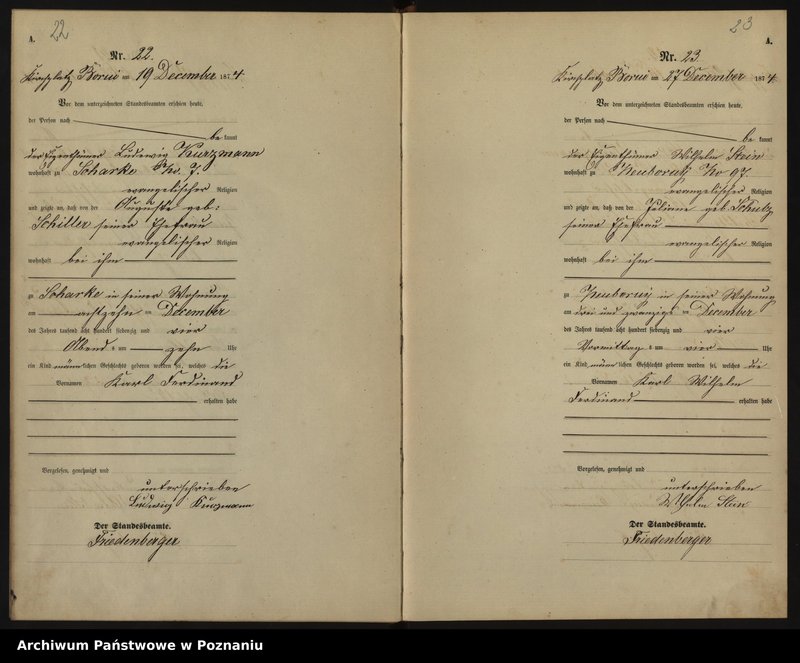 22
A.
Nr. 22.
Kirchplatz Borui am 19 December 1874.
Vor dem unterzeichneten Standesbeamten erschien heute,
der Person nach
bekannt
der Eigenthümer Ludewig Kurzmann
wohnhaft zu Scharke No. 7.
evangelischer Religion
und zeigte an, daß von der Auguste geb:
Schiller seiner Ehefrau
evangelischer Religion
wohnhaft bei ihm
zu Scharke in seiner Wohnung
am achtzehn ten December
des Jahres tausend acht hundert siebenzig und vier
Abend s um zehn Uhr
ein Kind männlichen Geschlechts geboren worden sei, welches die
Vornamen Karl Ferdinand
erhalten habe
Vorgelesen, genehmigt und
unterschrieben
Ludwig Kurzmann
Der Standesbeamte.
Friedenberger
23
A.
Nr. 23.
Kirchplatz Borui am 27 December 1874.
Vor dem unterzeichneten Standesbeamten erschien heute,
der Person nach
bekannt
der Eigenthümer Wilhelm Stein
wohnhaft zu Neuborui No 97.
evangelischer Religion
und zeigte an, daß von der Juliane geb Schulz
seiner Ehefrau
evangelischer Religion
wohnhaft bei ihm
zu Neuborui in seiner Wohnung
am drei und zwanzigs ten December
des Jahres tausend acht hundert siebenzig und vier
Vormittag s um vier Uhr
ein Kind männlichen Geschlechts geboren worden sei, welches die
Vornamen Karl Wilhelm
Ferdinand erhalten habe
Vorgelesen, genehmigt und
unterschrieben
Wilhelm Stein
Der Standesbeamte.
Friedenberger
Archiwum Państwowe w Poznaniu